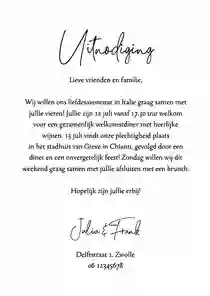 Uitnodiging
Lieve vrienden en familie,
Wij willen ons liefdesavontuur in Italie graag samen met
jullie vieren! Jullie zijn 12 juli vanaf 17.30 uur welkom
voor een gezamenlijk welkomstdiner met heerlijke
wijnen. 13 juli vindt onze plechtigheid plaats
in het stadhuis van Greve in Chianti, gevolgd door een
diner en een onvergetelijk feest! Zondag willen wij dit
weekend graag samen met jullie afsluiten met een brunch.
Hopelijk zijn jullie erbij!
Julia & Frank
Delftstraat 1, Zwolle
06 12345678